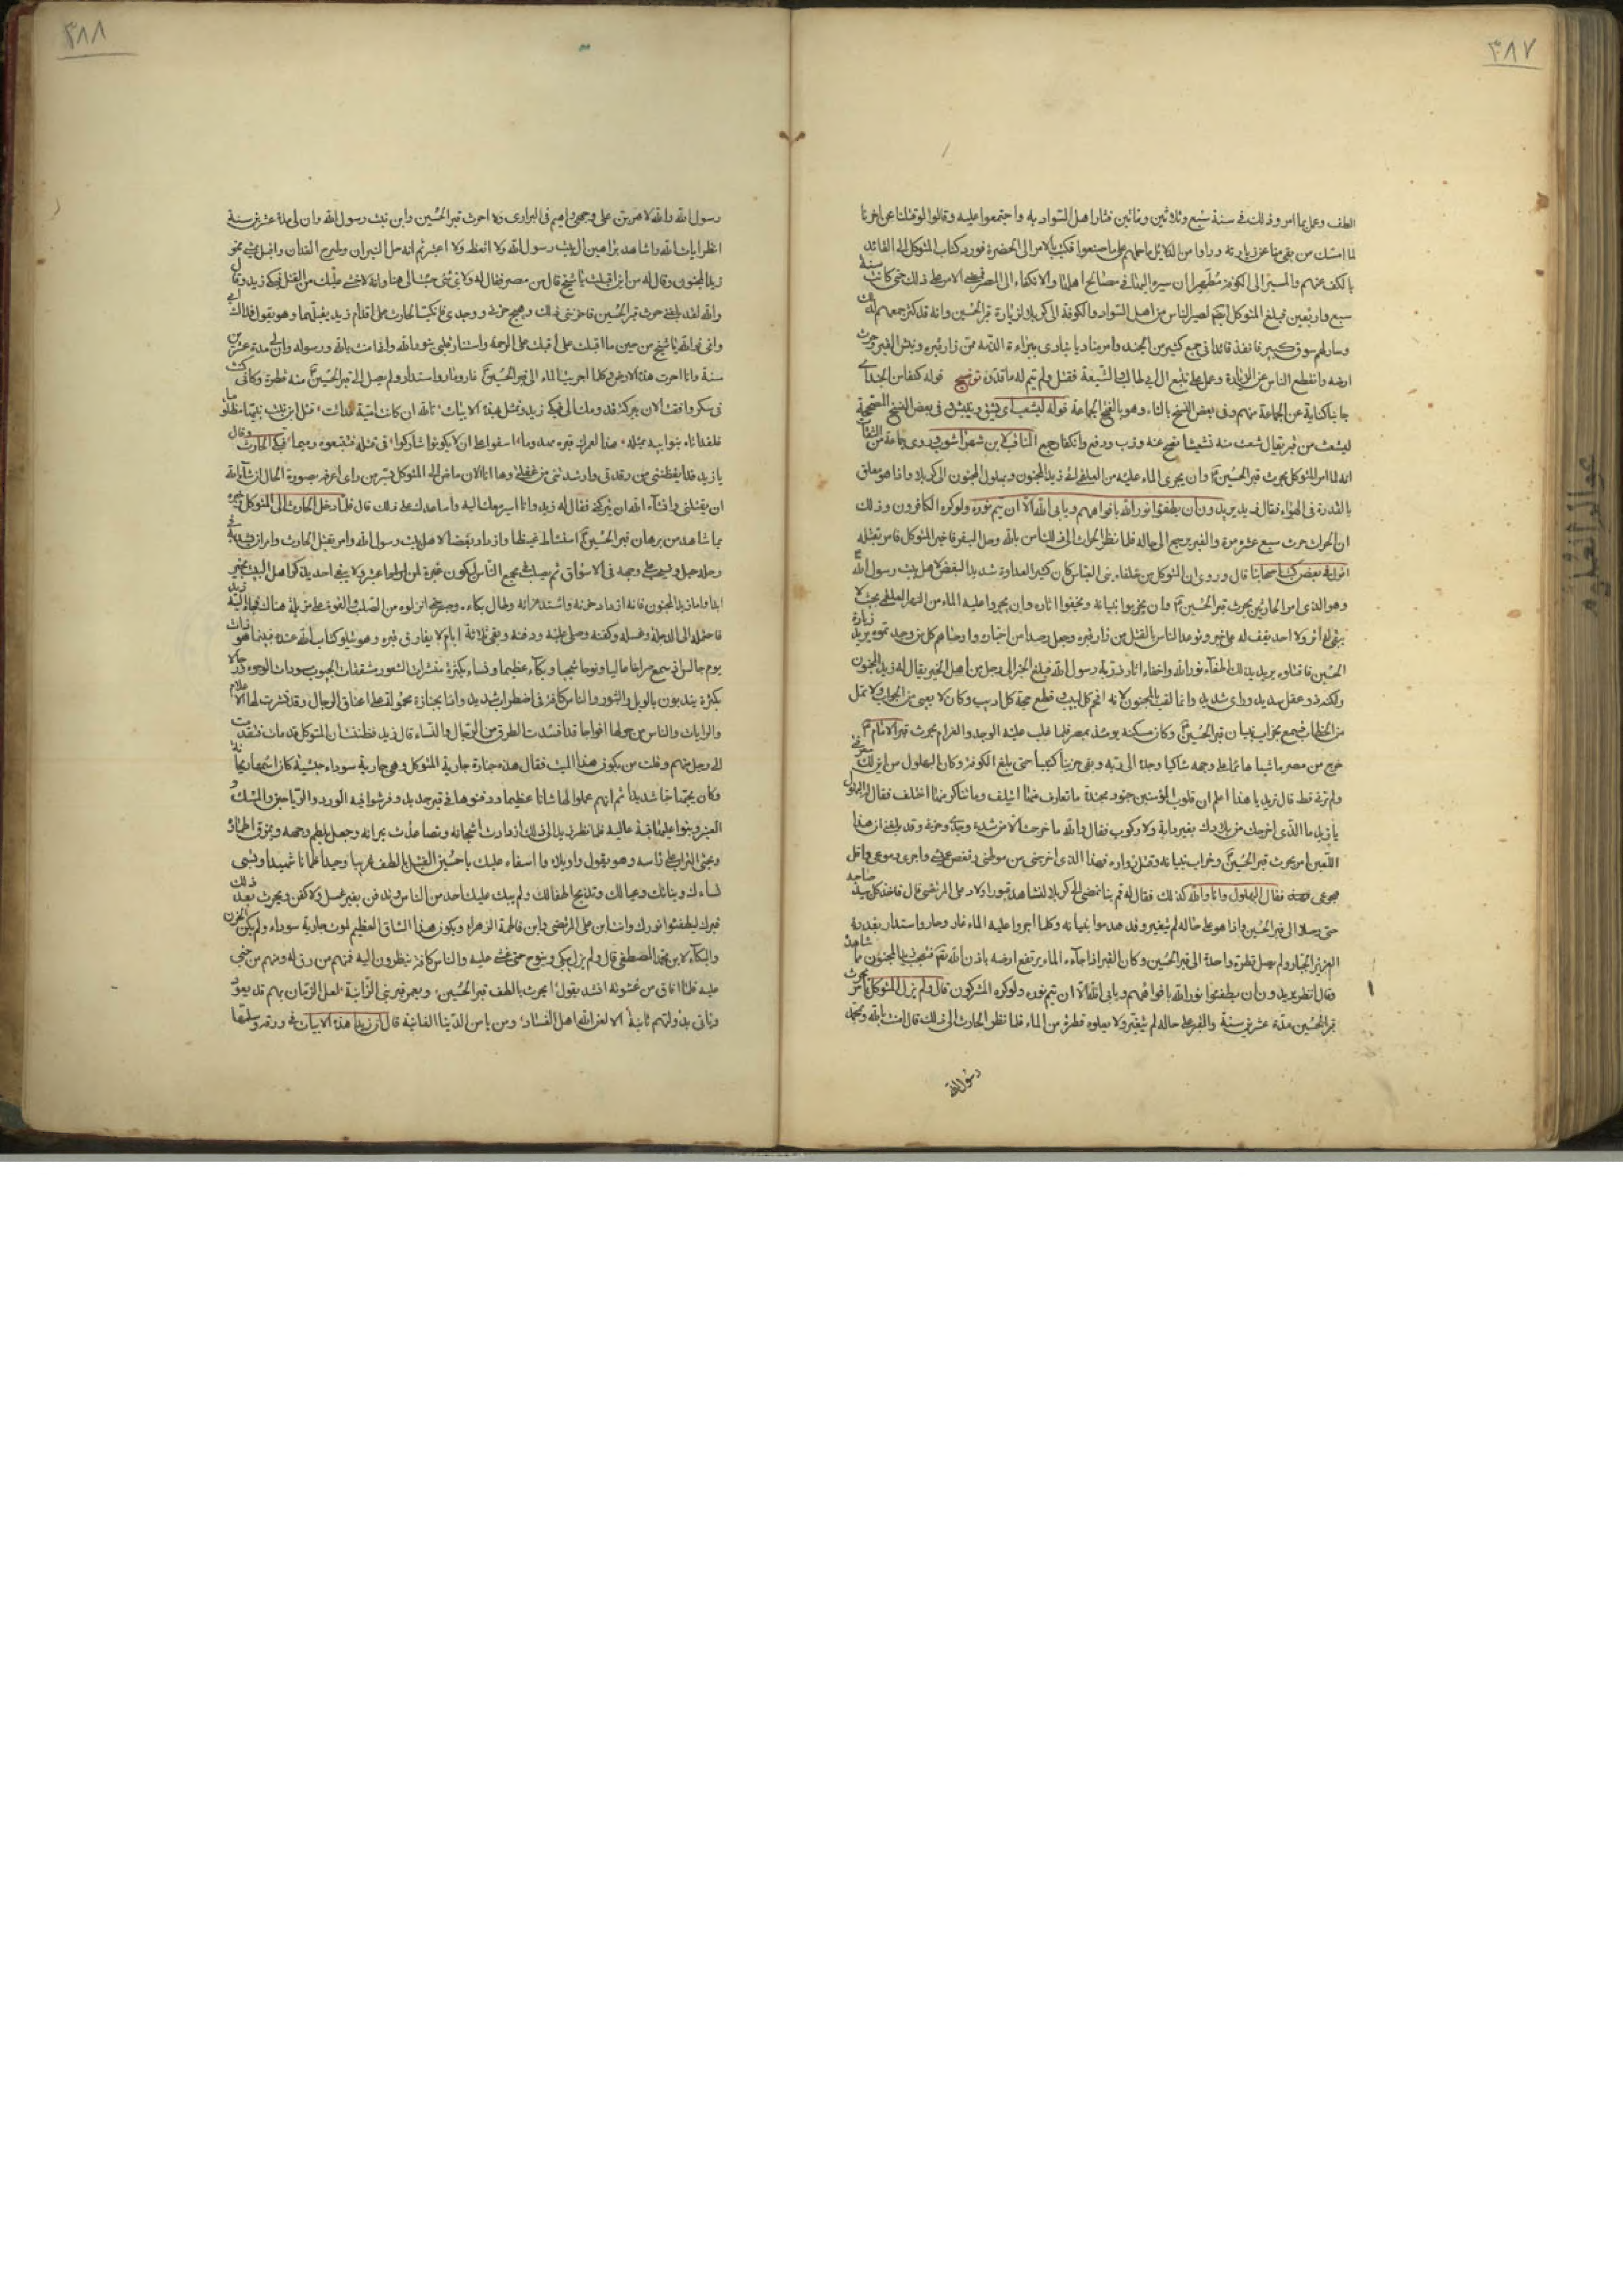 ٣٨٧
الطف وعمل بما امر وذلك فى سنة سبع وثلاثين ومائتين فثار اهل السواد به واجتمعوا عليه وقالوا لو قتلنا عن اخرنا
لما امسك من بقى منا عن زيارته وراوا من الدلائل ما حملهم على ما صنعوا فكتب بالامر الى الحضرة فورد كتاب المتوكل الى القائد
بالكف عنهم والمسير الى الكوفة مظهرا ان مسيره اليها فى مصالح اهلها والانكفاء الى المصر فمضى الامر على ذلك حتى كانت سنة
سبع واربعين فبلغ المتوكل ايضا مصير الناس من اهل السواد والكوفة الى كربلا لزيارة قبر الحسين وانه قد كثر جمعهم لذلك
وصار لهم سوق كبير فانفذ قائدا فى جمع كثير من الجند وامر مناديا ينادى ببراءة الذمة ممن زار قبره ونبش القبر وحرث
ارضه وانقطع الناس عن الزيارة وعمل على تتبع ال ابى طالب والشيعة فقتل ولم يتم له ما قدره توضيح قوله كنفا من الجند اى
جانبا كناية عن الجماعة منهم وفى بعض النسخ بالثاء وهو بالفتح الجماعة قوله ليشعب اى يشق وينبش وفى بعض النسخ المصححة
ليشعث من قبر يقال شعث منه تشعيثا نضح عنه وذب ودفع وانكفا رجع المناقب لابن شهراشوب وروى جماعة من الثقات
انه لما امر المتوكل بحرث قبر الحسين ع وان يجرى الماء عليه من العلقمى اتى زيد المجنون وبهلول المجنون الى كربلا واذا هو معلق
بالقدرة فى الهواء فقال زيد يريدون ان يطفؤا نور الله بافواههم ويابى الله الا ان يتم نوره ولو كره الكافرون وذلك
ان الحراث حرث سبع عشرة مرة والقبر يرجع الى حاله فلما نظر الحراث الى ذلك امن بالله وحل البقر فاخبر المتوكل فامر بقتله
اقول فى بعض كتب اصحابنا قال وروى ان المتوكل من خلفاء بنى العباس كان كثير العداوة شديد البغض لاهل بيت رسول الله
وهو الذى امر الحارثين بحرث قبر الحسين ع وان يخربوا بنيانه ويخفوا اثاره وان يجروا عليه الماء من النهر العلقمى بحيث لا
يبقى له اثر ولا احد يقف له على خبر وتوعد الناس بالقتل لمن زار قبره وجعل رصدا من اجناده واوصاهم كل من وجدتموه يريد زيارة
الحسين فاقتلوه يريد بذلك اطفاء نور الله واخفاء اثار ذرية رسول الله فبلغ الخبر الى رجل من اهل الخير يقال له زيد المجنون
ولكنه ذو عقل سديد وراى شديد وانما لقب بالمجنون لانه افحم كل لبيب وقطع حجة كل اديب وكان لا يعيى من الجواب ولا تمل
من الخطاب فسمع بخراب بنيان قبر الحسين ع وكان مسكنه يومئذ بمصر فلما غلب عليه الوجد والغرام بحرث قبر الامام ع
خرج من مصر ماشيا هائما على وجهه شاكيا وجده الى ربه وبقى حزينا كئيبا حتى بلغ الكوفة وكان البهلول
ولم تره قط قال زيد يا هذا اعلم ان قلوب المؤمنين جنود مجندة ما تعارف منها ائتلف وما تناكر منها اختلف فقال له البهلول
يا زيد ما الذى اخرجك من بلادك بغير دابة ولا مركوب فقال والله ما خرجت الا من شدة وجدى وحزنى وقد بلغنى ان هذا
اللعين امر بحرث قبر الحسين ع وخراب بنيانه وقتل زواره فهذا الذى اخرجنى من موطنى ونغص عيشى واجرى دموعى واقل
هجوعى فقال البهلول وانا والله كذلك فقال له قم بنا نمضى الى كربلا لنشاهد قبور اولاد على المرتضى قال فاخذ كل بيد صاحبه
حتى وصلا الى قبر الحسين واذا هو على حاله لم يتغير وقد هدموا بنيانه وكلما اجروا عليه الماء غار وحار واستدار بقدرة
العزيز الجبار ولم يصل قطرة واحدة الى قبر الحسين وكان القبر اذا جاءه الماء يرتفع ارضه باذن الله تعالى فتعجب زيد المجنون مما شاهده
وقال انظر يريدون ان يطفئوا نور الله بافواههم ويابى الله الا ان يتم نوره ولو كره المشركون قال ولم يزل المتوكل يامر بحرث
قبر الحسين مدة عشرين سنة والقبر على حاله لم يتغير ولا يعلوه قطرة من الماء فلما نظر الحارث الى ذلك قال امنت بالله وبمحمد
رسول الله
٣٨٨
رسول الله والله لاهربن على وجهى واهيم فى البرارى ولا احرث قبر الحسين وابن بنت رسول الله وان لى مدة عشرين سنة
انظر ايات الله واشاهد براهين ال بيت رسول الله ولا اتعظ ولا اعتبر ثم انه حل الثيران وطرح الفدان واقبل يمشى نحو
زيد المجنون وقال له من اين اقبلت يا شيخ قال من مصر فقال له ولاى شئ جئت الى هنا وانه لاخشى عليك من القتل فبكى زيد وقال
والله لقد بلغنى حرث قبر الحسين فاحزننى ذلك وهيج حزنى ووجدى فانكب الحارث على اقدام زيد يقبلهما وهو يقول فداك ابى
وامى فوالله يا شيخ من حين ما اقبلت على اقبلت على الرحمة واستنار قلبى بنور الله وانى امنت بالله ورسوله وان لى مدة عشرين
سنة وانا احرث هذه الارض وكلما اجريت الماء الى قبر الحسين ع غار وحار واستدار ولم يصل الى قبر الحسين ع منه قطرة وكانى كنت
فى سكر وافقت الان ببركة قدومك الى فبكى زيد وتمثل بهذه الابيات تالله ان كانت امية قد اتت قتل ابن بنت نبيها مظلوما
فلقد اتاه بنوا ابيه بمثله هذا لعمرك قبره مهدوما اسفوا على ان لا يكونوا شاركوا فى قتله فتتبعوه رميما فبكى الحارث وقال
يا زيد قد ايقظتنى من رقدتى وارشدتنى من غفلتى وها انا الان ماض الى المتوكل بسر من راى اعرفه بصورة الحال ان شاء الله
ان يقتلنى وان شاء الله ان يتركنى فقال له زيد وانا اسير معك اليه واساعدك على ذلك قال فلما دخل الحارث الى المتوكل وخبره
بما شاهد من برهان قبر الحسين ع استشاط غيظا وازداد بغضا لاهل بيت رسول الله وامر بقتل الحارث وامر ان يشد فى
رجله حبل ويسحب على وجهه فى الاسواق ثم يصلب فى مجمع الناس ليكون عبرة لمن اعتبر ولا يبقى احد يذكر اهل البيت بخير
ابدا واما زيد المجنون فانه ازداد حزنه واشتد عزائه وطال بكاءه وصبر حتى انزلوه من الصلب والقوه على مزبلة هناك فجاء اليه زيد
فاحتمله الى الدجلة وغسله وكفنه وصلى عليه ودفنه وبقى ثلاثة ايام لا يفارق قبره وهو يتلو كتاب الله عنده فبينما هو ذات
يوم جالس اذ سمع صراخا عاليا ونوحا شجيا وبكاء عظيما ونساء بكثرة منشرات الشعور مشققات الجيوب مسودات الوجوه ورجالا
بكثرة يندبون بالويل والثبور والناس كافة فى اضطراب شديد واذا بجنازة محمولة على اعناق الرجال وقد نشرت لها الاعلام
والرايات والناس من حولها افواجا قد انسدت الطرق من الرجال والنساء قال زيد فظننت ان المتوكل قد مات فتقدمت
الى رجل منهم وقلت من يكون هذا الميت فقال هذه جنازة جارية المتوكل وهى جارية سوداء حبشية وكان اسمها ريحانة
وكان يحبها حبا شديدا ثم انهم عملوا لها شانا عظيما ودفنوها فى قبر جديد وفرشوا فيه الورد والرياحين والمسك و
العنبر وبنوا عليها قبة عالية فلما نظر زيد الى ذلك ازدادت اشجانه وتصاعدت نيرانه وجعل يلطم وجهه ويمزق اطماره
ويحثى التراب على راسه وهو يقول واويلاه وا اسفاه عليك يا حسين اتقتل بالطف غريبا وحيدا ظمانا شهيدا وتسبى
نساءك وبناتك وعيالك وتذبح اطفالك ولم يبك عليك احد من الناس وتدفن بغير غسل ولا كفن ويحرث بعد ذلك
قبرك ليطفئوا نورك وانت ابن على المرتضى وابن فاطمة الزهراء ويكون هذا الشان العظيم لموت جارية سوداء ولم يكن الحزن
والبكاء لابن محمد المصطفى قال ولم يزل يبكى وينوح حتى غشى عليه والناس كافة ينظرون اليه فمنهم من رق له ومنهم من جنى
عليه فلما افاق من غشوته انشد يقول ايحرث بالطف قبر الحسين ويعمر قبر بنى الزانية لعل الزمان بهم قد يعود
وياتى بدولتهم ثانية الا لعن الله اهل الفساد ومن يامن الدنيا الفانية قال ان زيدا هذه الابيات فى ورقة وسلمها